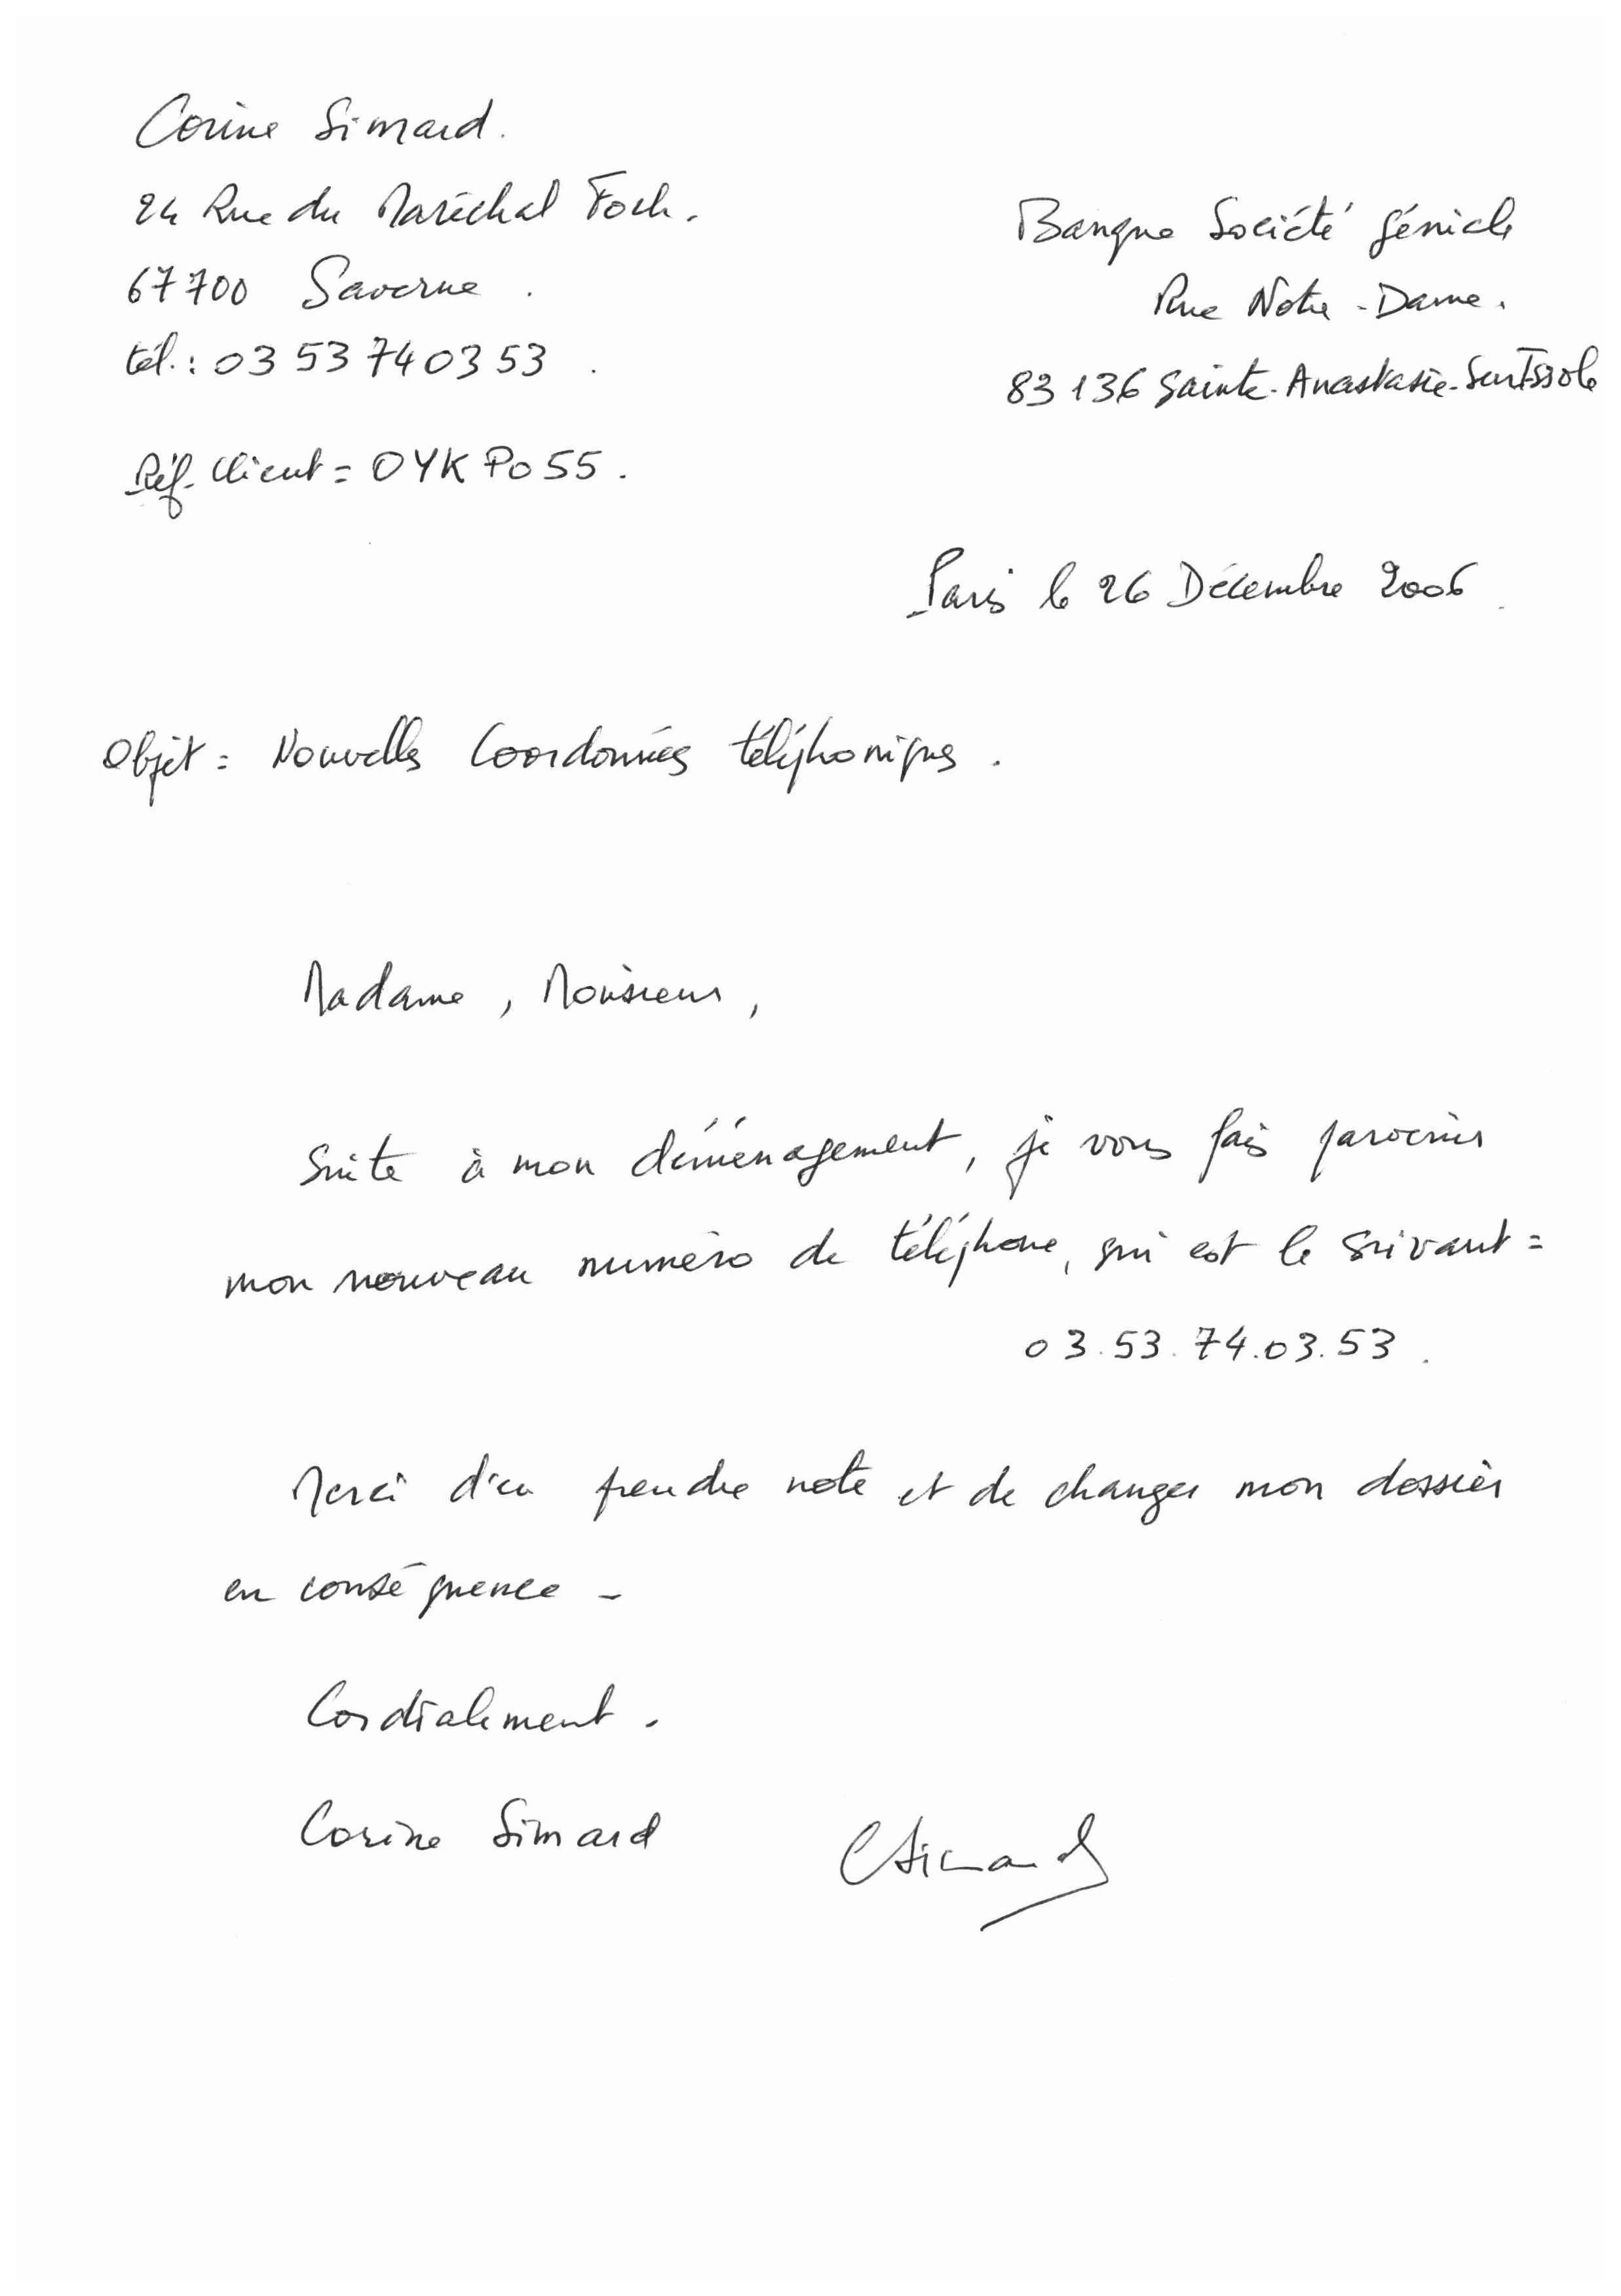 Corine Simard.
24 Rue du Maréchal Foch.
67700 Saverne.
tél.: 03 53 74 03 53.
Réf. Client = OYKPO55.
Banque Société
Rue Notre-Dame.
83136 Sainte-Anastasie-Sur Issole
Paris le 26 Décembre 2006.
Objet = Nouvelles Coordonnées téléphoniques.
Madame, Monsieur,
Suite à mon déménagement, je vous fais parvenir
mon nouveau numéro de téléphone, qui est le suivant =
03.53.74.03.53.
Merci d'en prendre note et de changer mon dossier
en conséquence -
Cordialement.
Corine Simard
CSimard